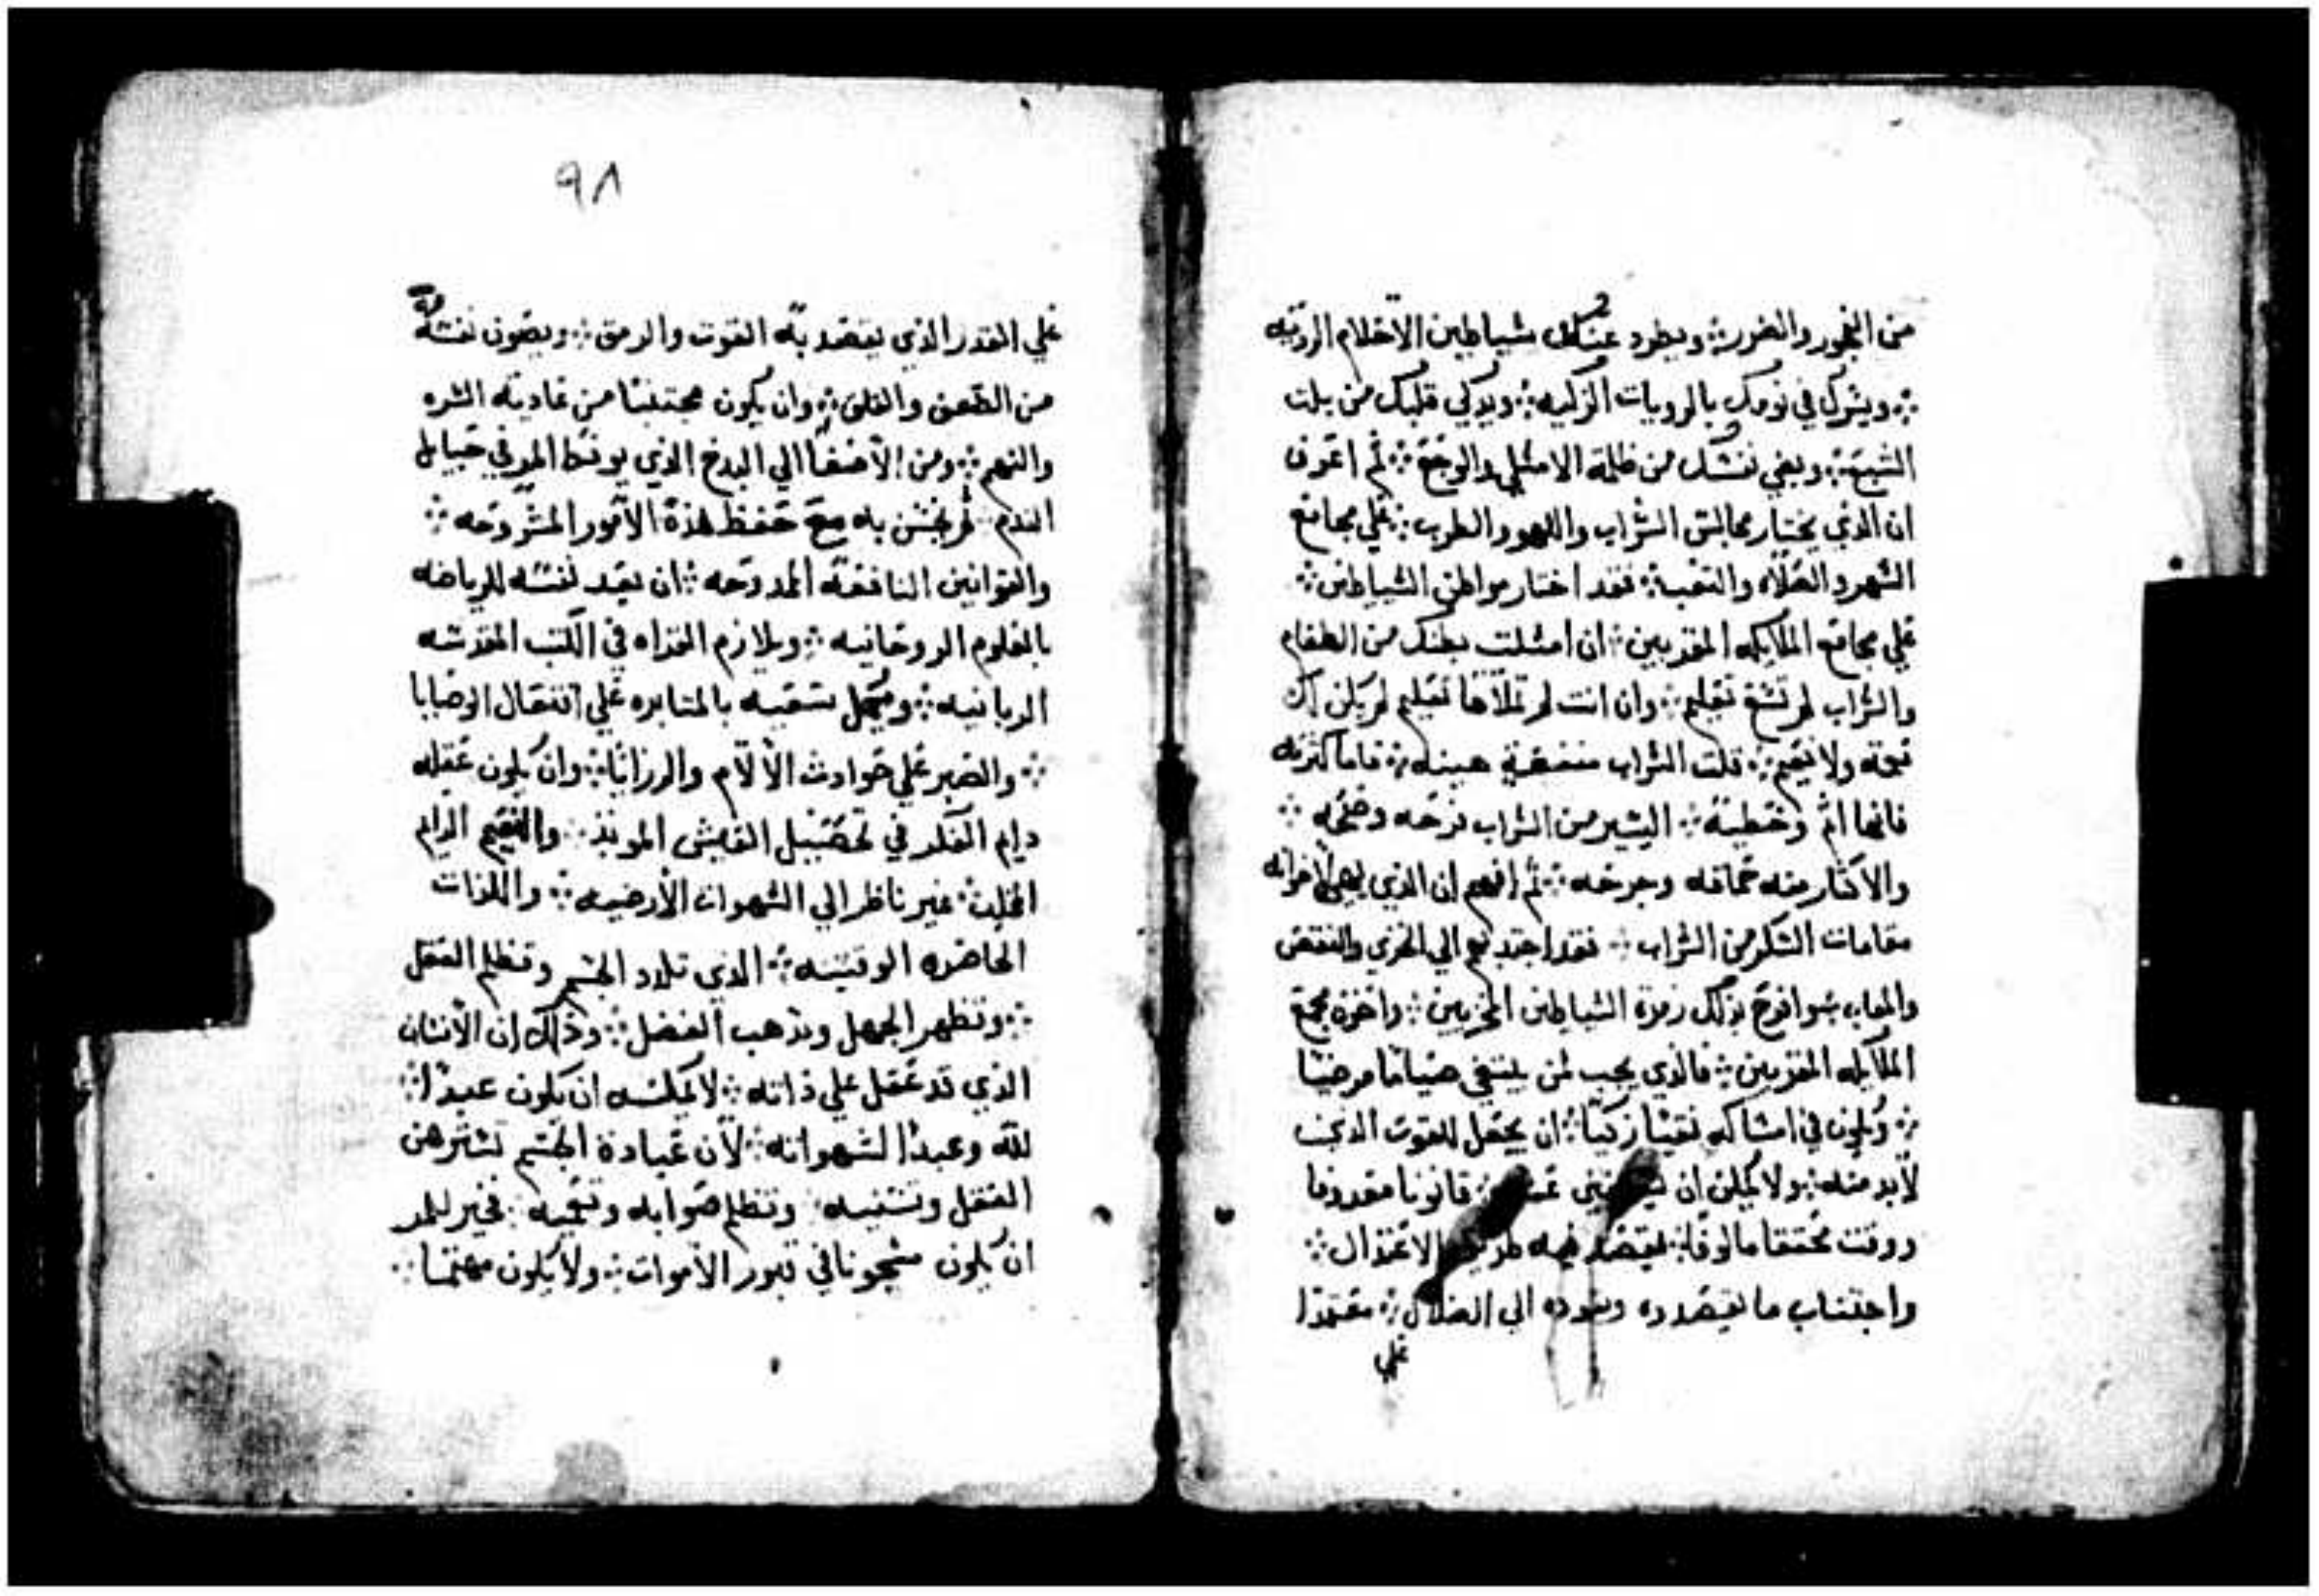 من الفجور والغرور ۞ ويطرد عنك شياطين الاحلام الرديه
۞ ويسرك في نومك بالرويات الزكيه ۞ ويزكي قلبك من بلت
الشبع ۞ ويغي نفسك من ظلمة الامتلي والوجع ۞ ثم اعرف
ان الذي يختار مجالس الشراب واللهو والطرب ۞ علي مجامع
السهر والصلاه والتعب ۞ فقد اختار مواطن الشياطين ۞
علي مجامع الملايكه المقربين ۞ ان امتلت بطنك من الطعام
والشراب لم تسع تعليم ۞ وان انت لم تملاها تعليم لم يكن لك
قيمة ولا تقيم ۞ قلت الشراب منفعة هينه ۞ فاما كثرته
فانها اثم وخطية ۞ اليسير من الشراب فرحه وصحه ۞
والاكثار منه حماقه وجرحه ۞ ثم افهم ان الذي يهي لاخوانه
مقامات السكر من الشراب ۞ فقد اجتدبهم الي الخزي والنقص
والعاب ۞ وافرح بذلك زمرة الشياطين المخزيين ۞ واحزن مجمع
الملايكه المقربين ۞ فالذي يجب لمن يبتغي صياما مرضيا
۞ ويكون في امساكه نقيا زكيا ۞ ان يجعل للقوت الذي
لابد منه ۞ ولا يمكن ان قانونا معروفا
ووقت محققا مالوفا ۞ يقصد فيه طريق الاعتدال ۞
واجتناب ما يفسده ويقوده الي الضلال ۞ معتمدا
علي
٩٨
علي القدر الذي يقصد به القوت والرمق ۞ ويصون نفسه فيه
من الطعن والقلق ۞ وان يكون مجتنبا من عادية الشره
والنهم ۞ ومن الاصغا الي البدخ الذي يوقع المر في حبايل
الندم ۞ ثم يحسن به مع حفظ هذه الامور المشروحه ۞
والقوانين النافعة الممدوحه ۞ ان يعد نفسه للرياضه
بالعلوم الروحانيه ۞ ويلازم القراه في الكتب المقدسه
الربانيه ۞ ويجمل سعيه بالمثابره علي افتعال الوصايا
۞ والصبر علي حوادث الالام والرزايا ۞ وان يكون عقله
دايم الفكر في تحصيل العيش الموبد ۞ والنعيم الدايم
المخلد ۞ غير ناظر الي الشهوات الارضيه ۞ واللذات
الحاضره الوقتيه ۞ الذي تلدد الجسم وتظلم العقل
۞ وتظهر الجهل وتذهب الفضل ۞ وذلك ان الانسان
الذي قد عقل علي ذاته ۞ لا يمكنه ان يكون عبدا ۞
لله وعبدا لشهواته ۞ لان عبادة الجسم تسترهن
العقل وتستبيه ۞ وتظلم صوابه وتعميه ۞ فخير للمر
ان يكون مسجونا في قبور الاموات ۞ ولا يكون مهتما ۞